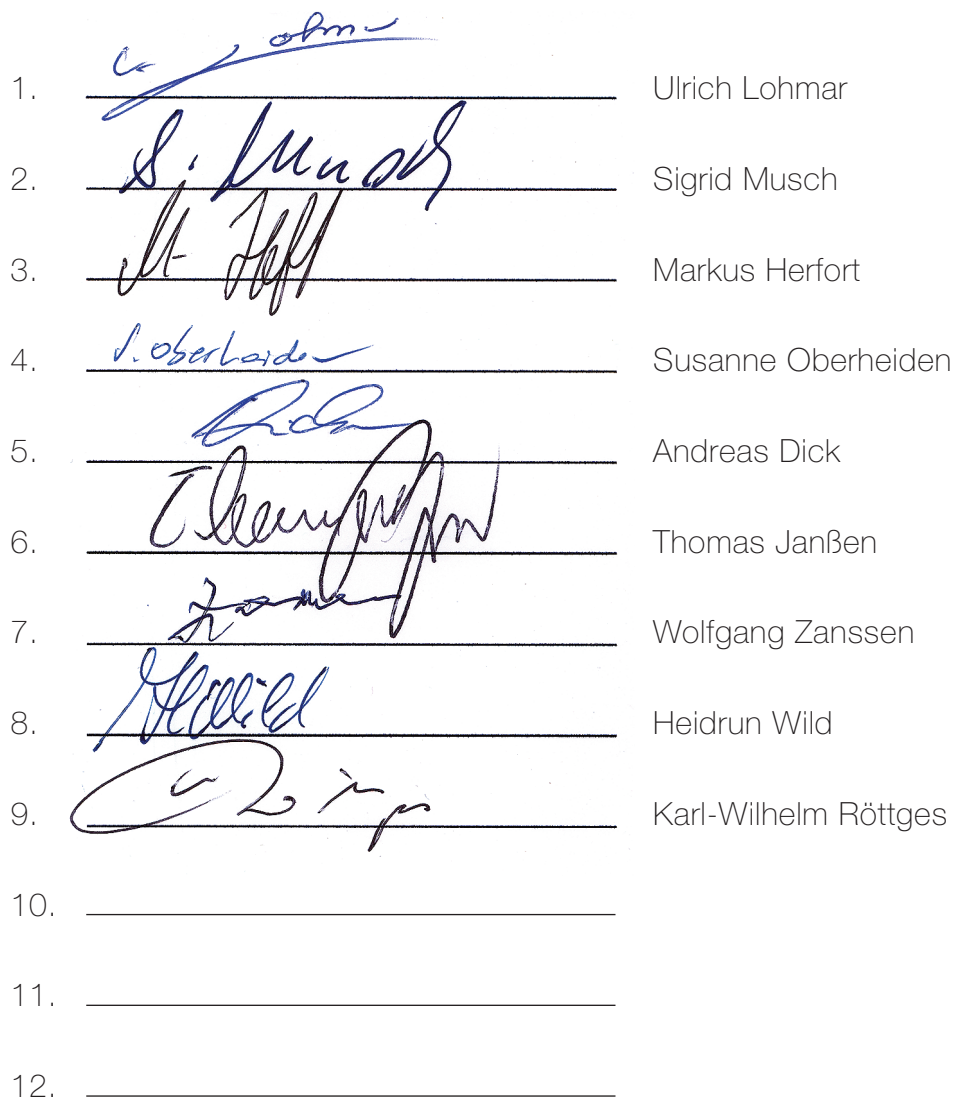 1. Ulrich Lohmar
2. S. Musch Sigrid Musch
3. Markus Herfort
4. S. Oberheiden Susanne Oberheiden
5. Andreas Dick
6. Thomas Janßen
7. Wolfgang Zanssen
8. HWild Heidrun Wild
9. Karl-Wilhelm Röttges
10.
11.
12.